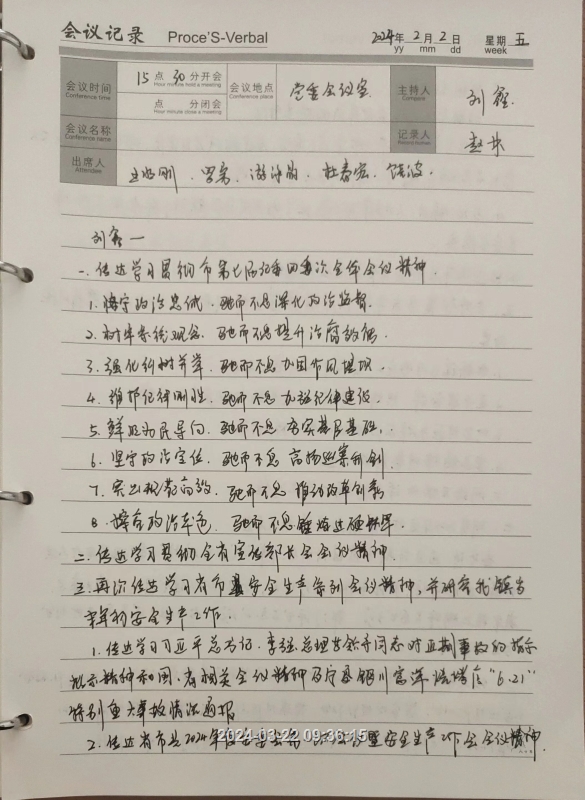 会议记录 Proce'S-Verbal 2024年2月2日 星期五
yy mm dd week
会议时间 15点30分开会 会议地点 党委会议室 主持人 刘
Conference time Hour minute held a meeting Conference place Compere
点 分闭会
Hour minute close a meeting
会议名称 记录人 赵
Conference name Record holder
出席人
Attendee
刘 一
一、传达学习贯彻市第七届纪委四次全体会议精神.
1. 政治忠诚、驰而不息深化政治监督.
2. 树牢系统观念、驰而不息提升治腐效能.
3. 强化纠树并举、驰而不息加固作风堤坝.
4. 维护纪律刚性、驰而不息加强纪律建设.
5. 鲜明为民导向、驰而不息夯实基层基础.
6. 坚守政治定位、驰而不息高扬巡察利剑.
7. 突出规范高效、驰而不息推动改革创新
8. 政治本色、驰而不息锤炼过硬铁军.
二、传达学习贯彻全省宣传部长会会议精神.
三、再次传达学习省市县安全生产系列会议精神,并研究我镇当
前安全生产工作.
1. 传达学习习近平总书记、李强总理 同志对近期事故的指示
批示精神和国、省相关会议精神及宁夏银川富洋烧烤店“6.21”
特别重大事故情况通报
2. 传达省市县2024年 安全生产工作会会议精神.
2024-03-22 09:36:15